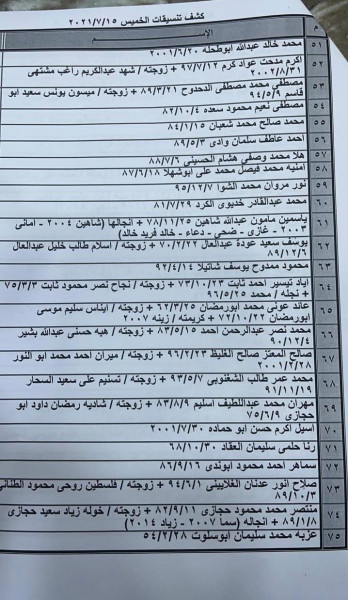 كشف تنسيقات الخميس ٢٠٢١/٧/١٥
م الإســم
٥١ محمد خالد عبدالله ابوطحله ٢٠٠١/٦/٢٠
٥٢ اكرم مدحت عواد كرم ٩٧/٧/١٢ + زوجته / شهد عبدالكريم راغب مشتهى
٢٠٠٢/٨/٣١
٥٣ مصطفى محمد مصطفى الدحدوح ٨٩/٣/٢١ + زوجته / ميسون يونس سعيد ابو
قاسم ٩٤/٥/٩
٥٤ مصطفى نعيم محمود سعده ٨٢/١٠/٤
٥٥ محمد صالح محمد شعبان ٨٤/١/١٥
٥٦ احمد عاطف سلمان وادى ٨٩/٥/٣
٥٧ هلا محمد وصفى هشام الحسينى ٨٨/٧/٦
٥٨ امنيه محمد فيصل محمد على ابوشهلا ٨٧/٦/١٨
٥٩ نور مروان محمد الشوا ٩٥/١٢/٧
٦٠ محمد عبدالقادر خديوى الكرد ٨١/٧/٢٩
٦١ ياسمين مامون عبدالله شاهين ٧٨/١١/٢٥ + انجالها (شاهين ٢٠٠٤ - امانى
٢٠٠٣ - غازى - ضحى - دعاء - خالد فريد خالد)
٦٢ يوسف سعيد عودة عبدالعال ٧٠/٢/٢٢ + زوجته / اسلام طالب خليل عبدالعال
٨٩/١٢/٦
٦٣ محمود ممدوح يوسف شاتيلا ٩٢/٤/١٤
٦٤ اياد تيسير احمد ثابت ٧٣/١٠/٢٣ + زوجته / نجاح نصر محمود ثابت ٧٥/٣/٣
+ نجله / محمد ٩٦/٥/٢٥
٦٥ عائد عونى محمد ابورمضان ٦٢/٣/٢٥ + زوجته / ايناس سليم موسى
ابورمضان ٧٢/١٠/٢٢ + كريمته / زينه ٢٠٠٧
٦٦ محمد نصر عبدالرحمن احمد ٨٣/٥/١٥ + زوجته / هبه حسنى عبدالله بشير
٩٠/١٢/٤
٦٧ صالح المعتز صالح الغليظ ٩٦/٢/٢٣ + زوجته / ميران احمد محمد ابو النور
٢٠٠١/٢/٢٨
٦٨ محمد عمر طالب الشغنوبى ٩٣/٥/٧ + زوجته / تسنيم على سعيد السحار
٩١/١١/١٩
٦٩ مهران محمد عبداللطيف اسليم ٨٣/٨/٩ + زوجته / شاديه رمضان داود ابو
حجازى ٧٥/٦/٩
٧٠ اسيل اكرم حسن ابو حماده ٢٠٠١/٧/٣٠
٧١ رنا حلمى سليمان العقاد ٦٨/١٠/٣٠
٧٢ سماهر احمد محمود ابوندى ٨٦/٩/١٦
٧٣ صلاح انور عدنان الغلايينى ٩٤/٦/١ + زوجته / فلسطين روحى محمود
٨٩/١٠/٣
٧٤ منتصر محمد محمود حجازى ٨٢/٩/١١ + زوجته / خوله زياد سعيد حجازى
٨٩/١/٨ + انجاله (سما ٢٠٠٧ - زياد ٢٠١٤)
٧٥ عزبه محمد سليمان ابوسلوت ٥٤/٢/٢٨